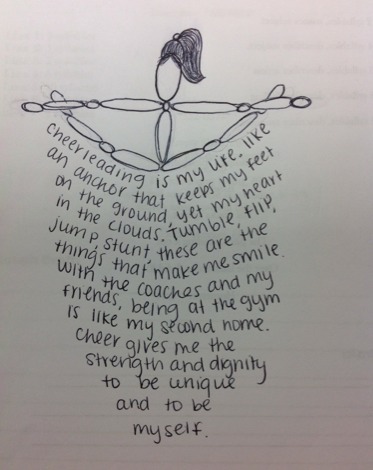 cheerleading is my life, like
an anchor that keeps my feet
on the ground, yet my heart
in the clouds. Tumble, flip,
jump, stunt, these are the
things that make me smile.
With the coaches and my
friends, being at the gym
is like my second home.
Cheer gives me the
strength and dignity
to be unique
and to be
myself.